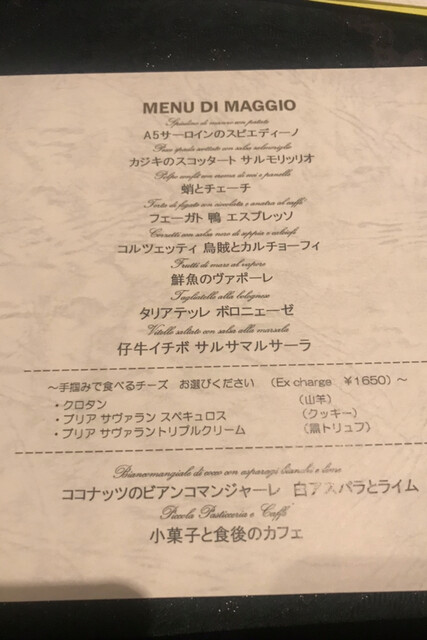 MENU DI MAGGIO
Spiedino di manzo con patate
A5サーロインのスピエディーノ
Pesce spada scottato con salsa salmoriglio
カジキのスコッタート サルモリッリオ
Polpo confit con crema di ceci e panelle
蛸とチェーチ
Torta di fegato con cioccolata e anatra al caffè
フェーガト 鴨 エスプレッソ
Corzetti con salsa nero di seppia e carciofi
コルツェッティ 烏賊とカルチョーフィ
Frutti di mare al vapore
鮮魚のヴァポーレ
Tagliatelle alla bolognese
タリアテッレ ボロニェーゼ
Vitello saltato con salsa alla marsala
仔牛イチボ サルサマルサーラ
～手掴みで食べるチーズ お選びください （Ex charge ￥1650）～
・クロタン （山羊）
・ブリア サヴァラン スペキュロス （クッキー）
・ブリア サヴァラントリプルクリーム （黒トリュフ）
Biancomangiale di cocco con asparagi bianchi e lime
ココナッツのビアンコマンジャーレ 白アスパラとライム
Piccola Pasticceria e Caffè
小菓子と食後のカフェ